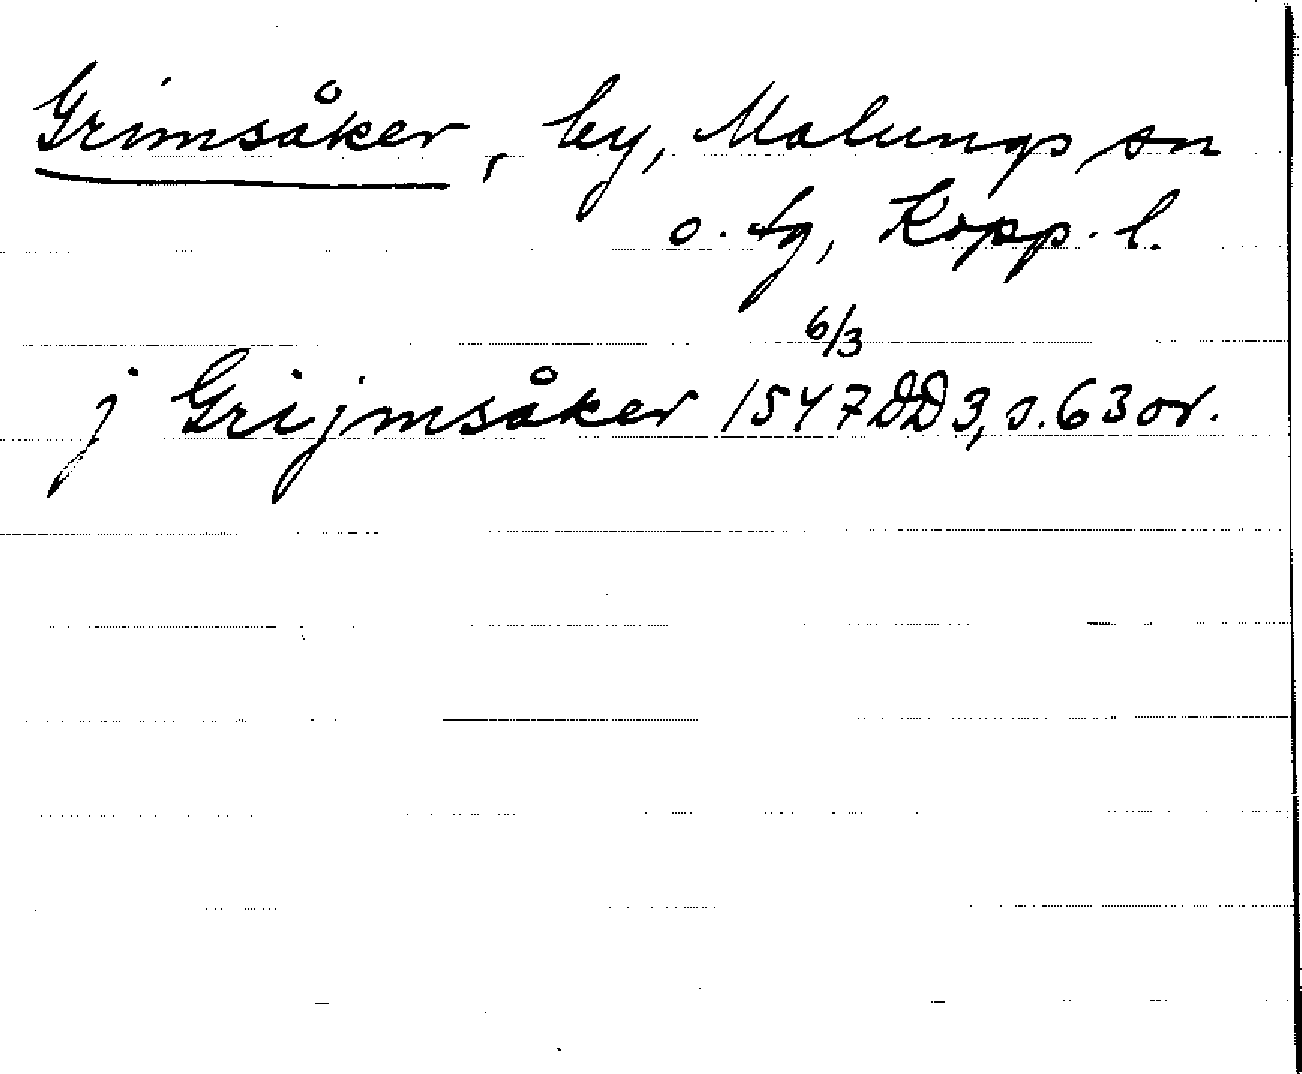 Grimsåker, by, Malungs sn
o. tg, Kopp. l.
6/3
j Grijmsåker 1547 DD 3, s. 63 or.